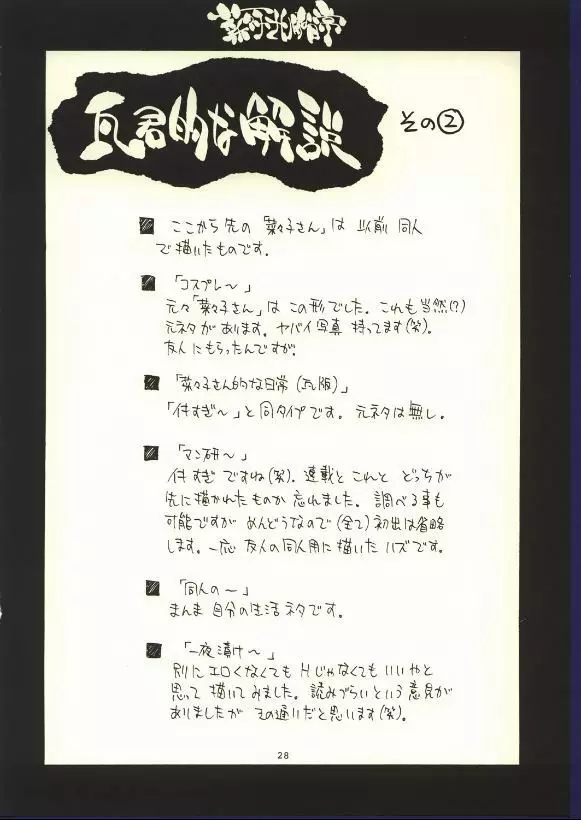 瓦君的な解説 その②
■ ここから先の「菜々子さん」は 以前 同人
で描いたものです。
■ 「コスプレ〜」
元々「菜々子さん」は この形でした。これも当然(?)
元ネタがあります。ヤバイ写真 持ってます(笑)。
友人にもらったんですが。
■ 「菜々子さん的な日常(瓦版)」
「付すぎ〜」と同タイプです。元ネタは無し。
■ 「マン研〜」
付すぎ ですね(笑)。連載と これと どっちが
先に描かれたものか 忘れました。調べる事も
可能ですが めんどうなので(全て)初出は省略
します。一応 友人の同人用に 描いた ハズです。
■ 「同人の〜」
まんま 自分の生活ネタです。
■ 「一夜漬け〜」
別に エロくなくても Hじゃなくても いいやと
思って 描いて みました。読みづらいという意見が
ありましたが その通りだと思います(笑)。
28